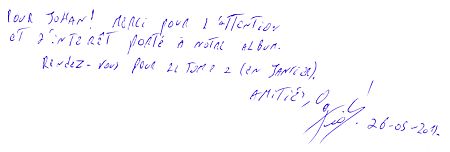 POUR JOHAN! MERCI POUR L'ATTENTION
ET D'INTERÊT PORTÉ À NOTRE ALBUM.
RENDEZ-VOUS POUR LE TOME 2 (EN JANVIER).
AMITIÉS,
26-05-201